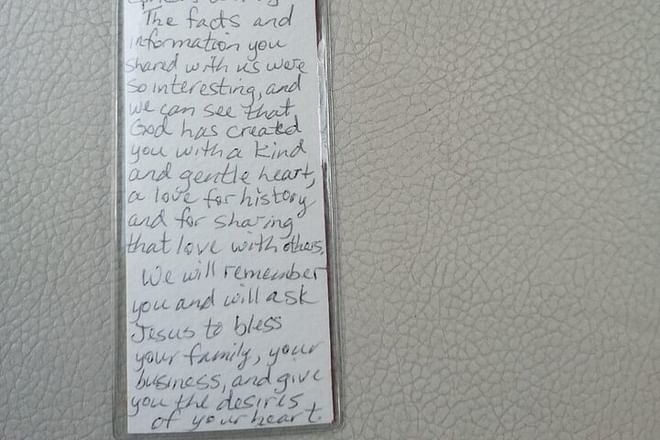 The facts and
information you
shared with us were
so interesting, and
we can see that
God has created
you with a kind
and gentle heart,
a love for history
and for sharing
that love with others.
We will remember
you and will ask
Jesus to bless
your family, your
business, and give
you the desires
of your heart.